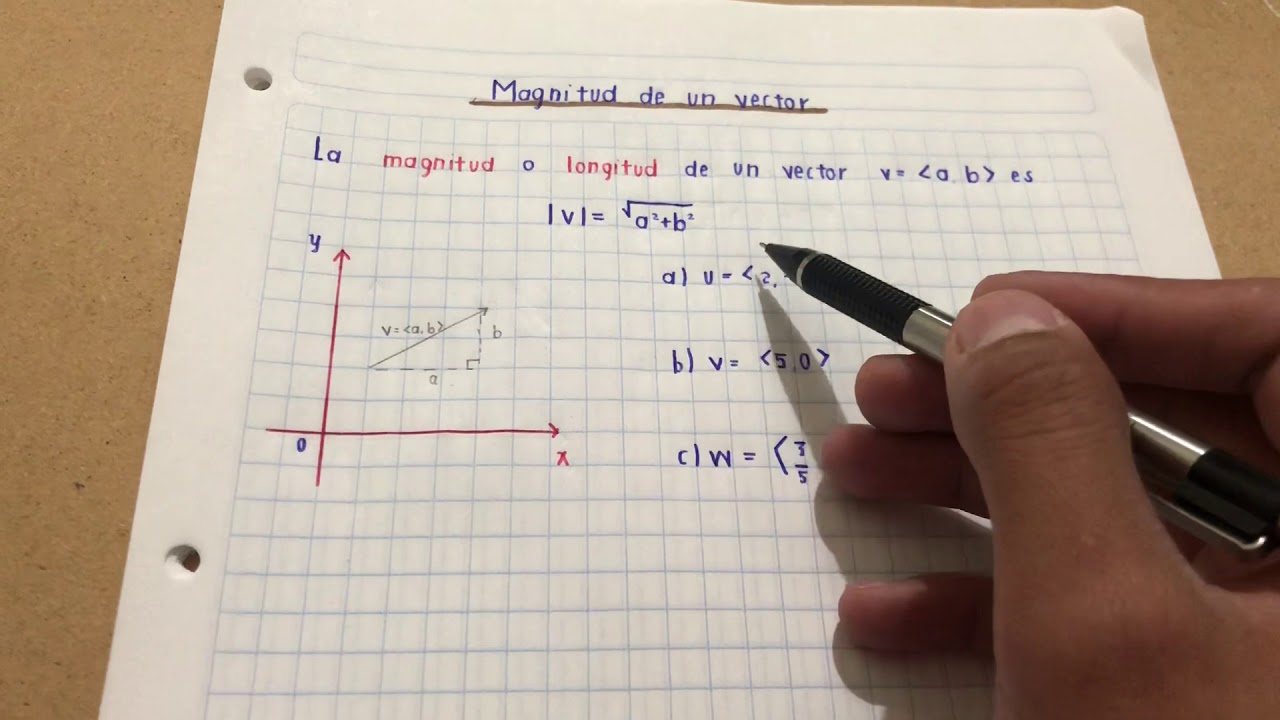 Magnitud de un vector
La magnitud o longitud de un vector v = <a, b> es
|v| = √a²+b²
y
a) u = <2,
v = <a, b>
b
b) v = <5, 0>
a
0
x
c) w = ⟨3/5